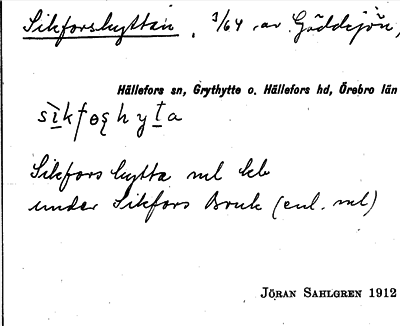 Sikforshyttan, 3/64 av Gäddsjön,
Hällefors sn, Grythytte o. Hällefors hd, Örebro län
sìkfɵşhyta
Sikfors hytta ml kb
under Sikfors Bruk (enl. ml)
JÖRAN SAHLGREN 1912